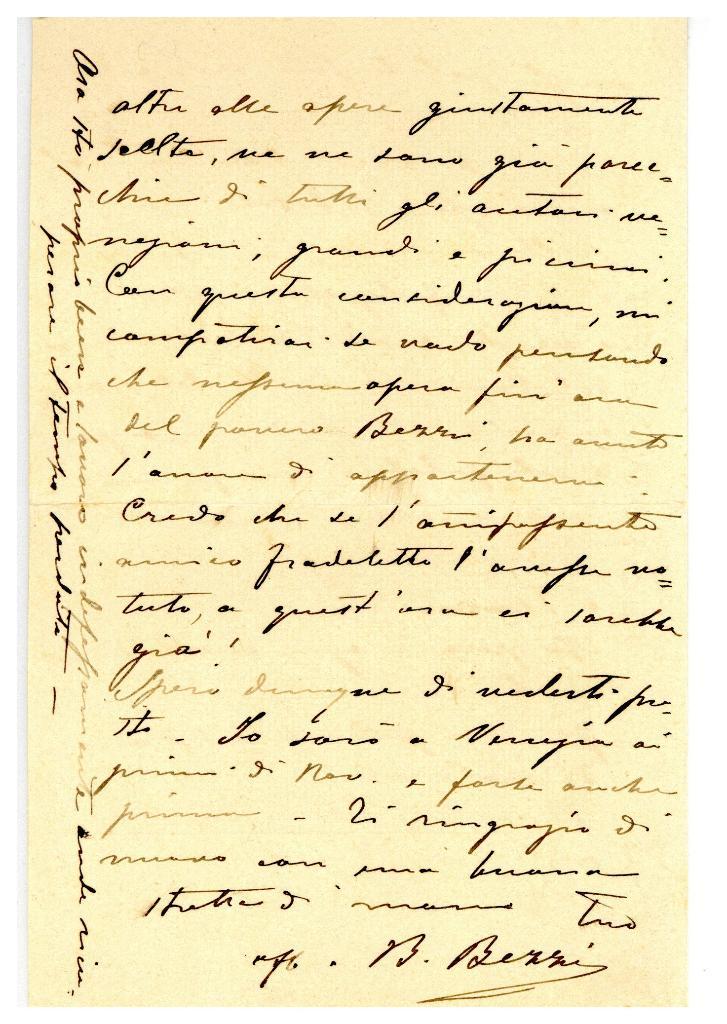 altre alle opere giustamente
scelte, ve ne sono già parec=
chie di tutti gli autori ve=
neziani, grandi e piccini.
Con questa considerazione, mi
compatirai se vado pensando
che nessuna opera fin'ora
del povero Bezzi, ha avuto
l'onore di appartenervi.
Credo che se l'onnipossente
amico Fradeletto l'avesse vo=
luto, a quest'ora ci sarebbe
già!
Spero dunque di vederti pre=
sto. Io sarò a Venezia ai
primi di Nov. e forse anche
prima. Ti ringrazio di
nuovo con una buona
stretta di mano Tuo
aff. B. Bezzi
Ora sto proprio bene e lavoro indefessamente onde ricu-
perare il tempo perduto —